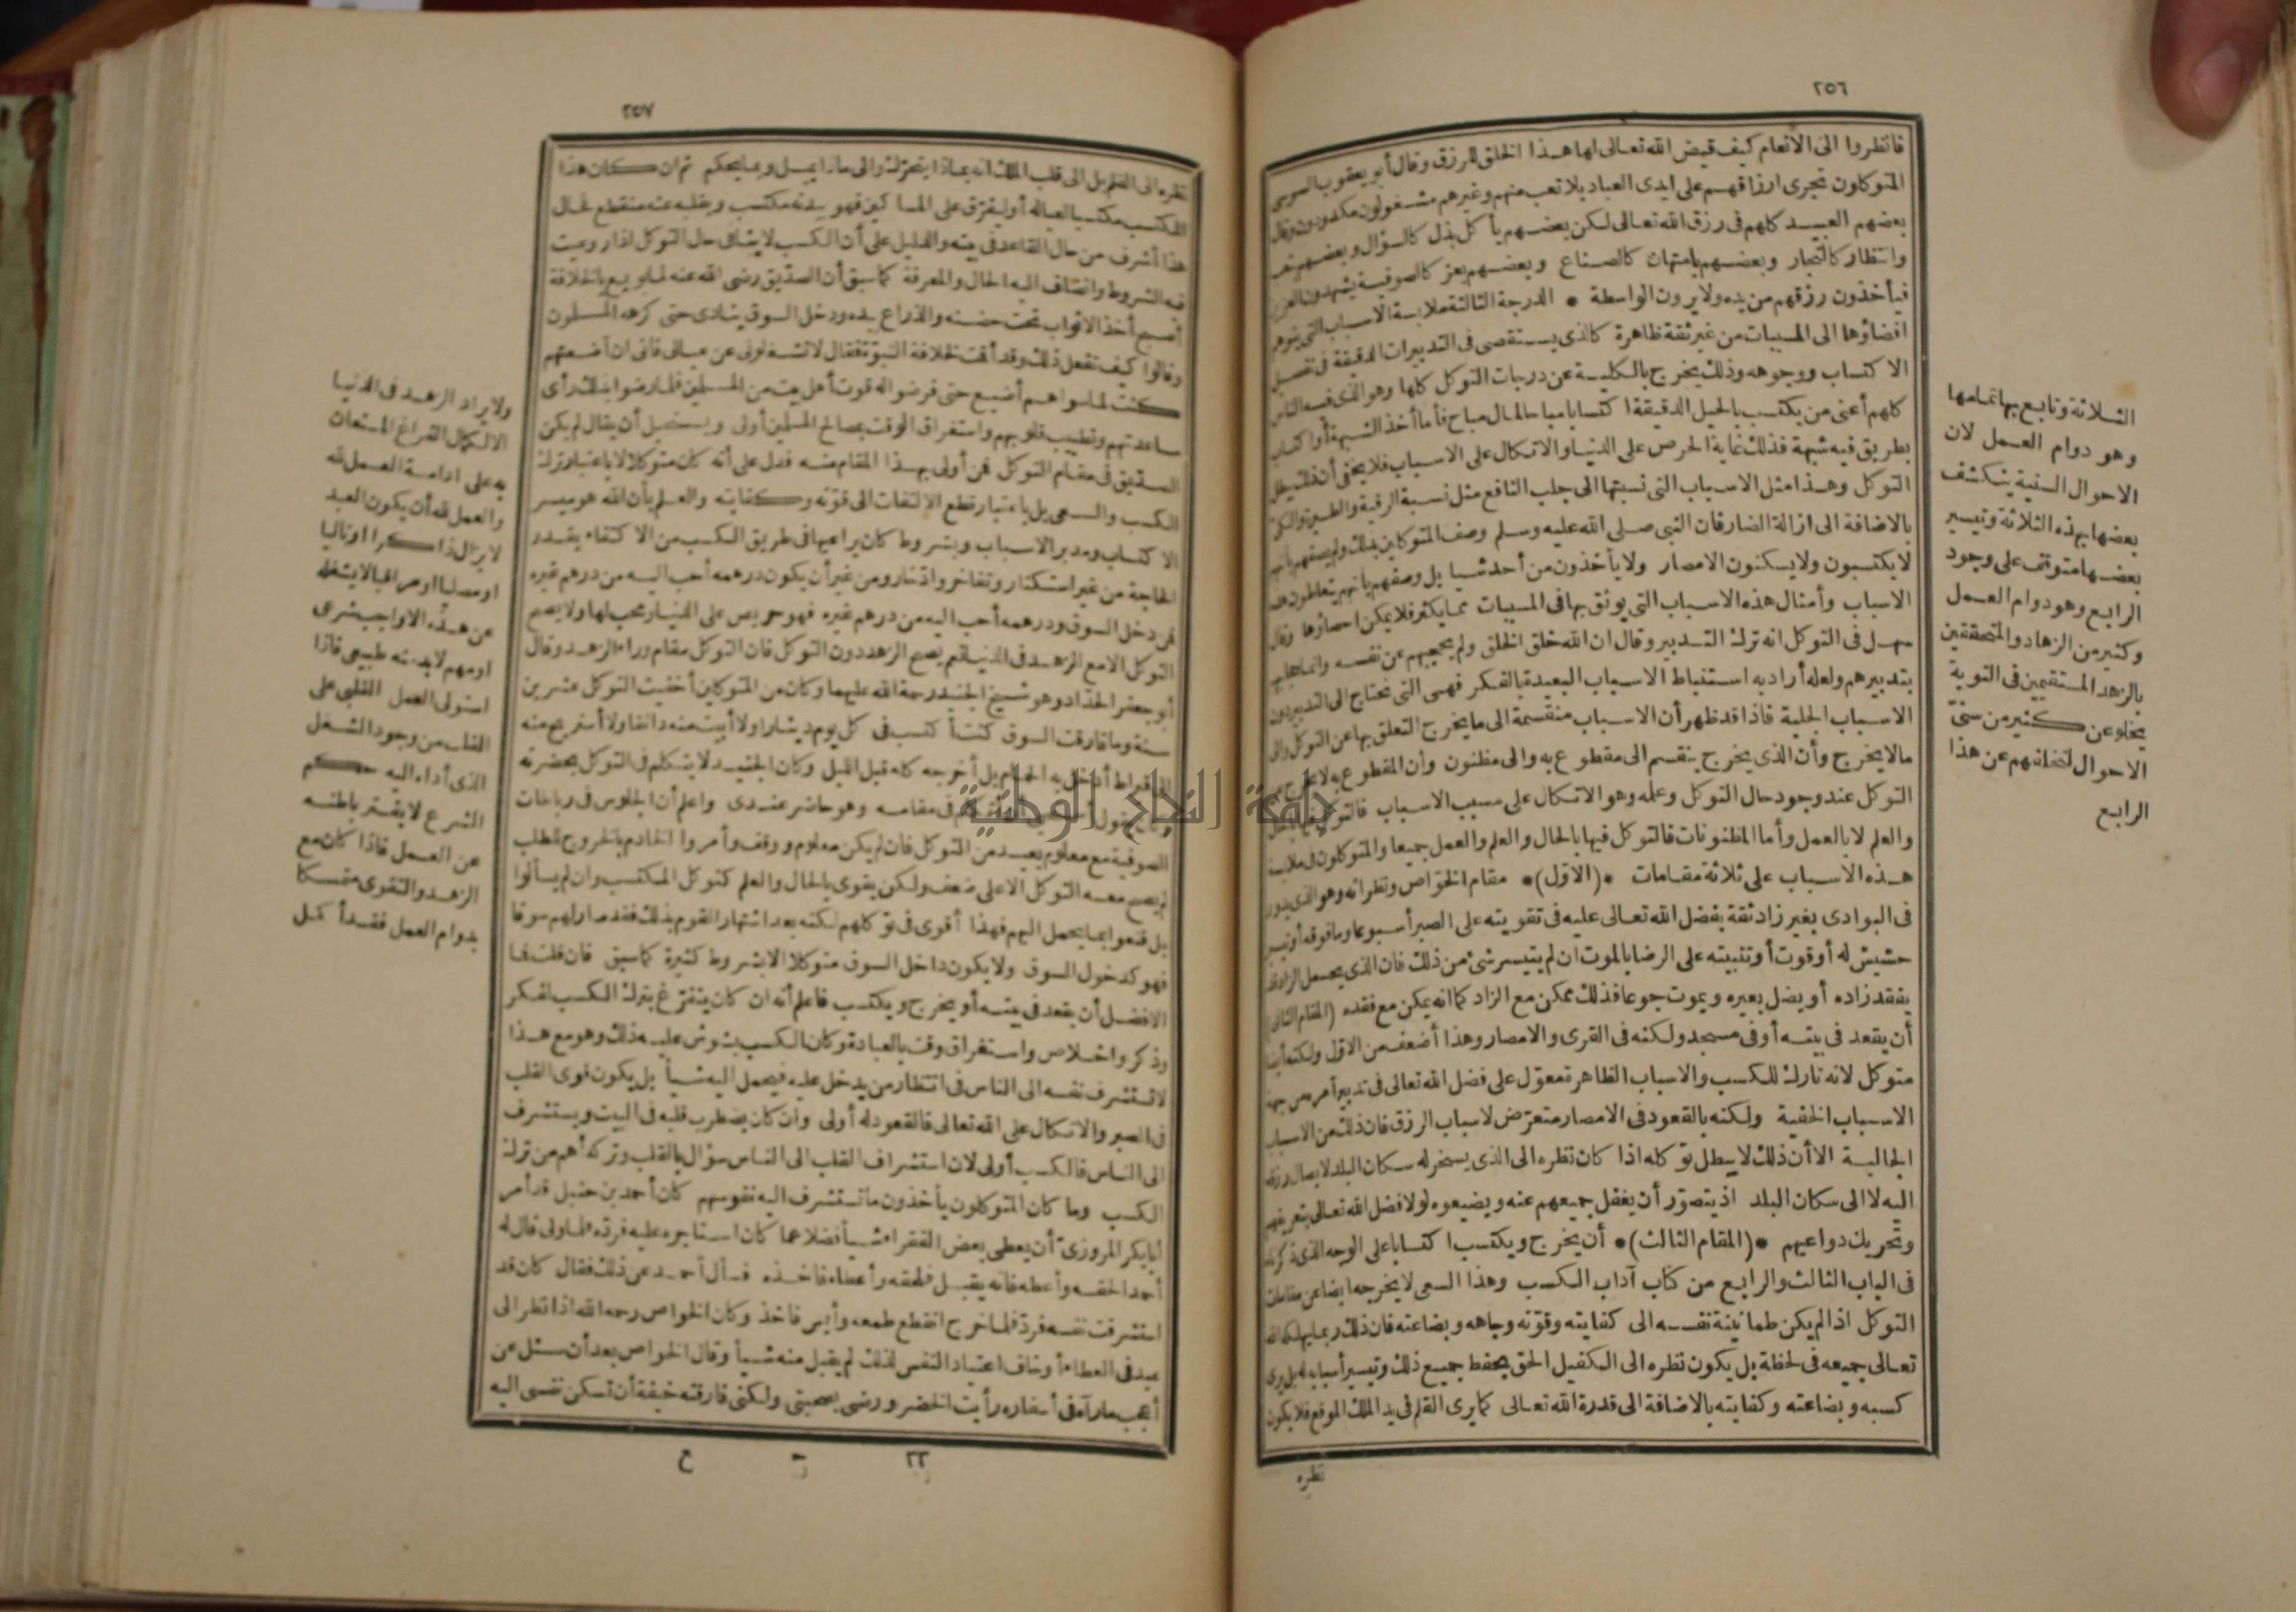 ٢٥٦
فانظروا الى الانعام كيف قيض الله تعالى لها هذا الخلق للرزق وقال أبو يعقوب السوسى
المتوكلون تجرى ارزاقهم على ايدى العباد بلا تعب منهم وغيرهم مشغولون مكدودون وقال
بعضهم العبيد كلهم فى رزق الله تعالى لكن بعضهم يأكل بذل كالسؤال وبعضهم بتعب
وانتظار كالتجار وبعضهم بامتهان كالصناع وبعضهم بعز كالصوفية يشهدون العزيز
فيأخذون رزقهم من يده ولا يرون الواسطة * الدرجة الثالثة ملابسة الاسباب التى يتوهم
افضاؤها الى المسببات من غير ثقة ظاهرة كالذى يستقصى فى التدبيرات الدقيقة فى تفصيل
الاكتساب ووجوهه وذلك يخرج بالكلية عن درجات التوكل كلها وهو الذى فيه الناس
كلهم أعنى من يكتسب بالحيل الدقيقة اكتسابا مباحا لمال مباح فأما أخذ الشبهة أو اكتساب
بطريق فيه شبهة فذلك غاية الحرص على الدنيا والاتكال على الاسباب فلا يخفى أن ذلك يبطل
التوكل وهذا مثل الاسباب التى نسبتها الى جلب النافع مثل نسبة الرقية والطيرة والكى
بالاضافة الى ازالة الضار فان النبى صلى الله عليه وسلم وصف المتوكلين بذلك ولم يصفهم بأنهم
لا يكتسبون ولا يسكنون الامصار ولا يأخذون من أحد شيا بل وصفهم بأنهم يتعاطون هذه
الاسباب وأمثال هذه الاسباب التى يوثق بها فى المسببات مما يكثر فلا يمكن احصاؤها وقال
سهل فى التوكل انه ترك التدبير وقال ان الله خلق الخلق ولم يحجبهم عن نفسه وانما حجابهم
بتدبيرهم ولعله أراد به استنباط الاسباب البعيدة بالفكر فهى التى تحتاج الى التدبير دون
الاسباب الجلية فاذا قد ظهر أن الاسباب منقسمة الى ما يخرج التعلق بها عن التوكل والى
مالا يخرج وأن الذى يخرج ينقسم الى مقطوع به والى مظنون وأن المقطوع به لا يخرج عن
التوكل عند وجود حال التوكل وعلمه وهو الاتكال على مسبب الاسباب فالتوكل فيها بالحال
والعلم لا بالعمل وأما المظنونات فالتوكل فيها بالحال والعلم والعمل جميعا والمتوكلون فى ملابسة
هذه الاسباب على ثلاثة مقامات *(الاول)* مقام الخواص ونظرائه وهو الذى يدور
فى البوادى بغير زاد ثقة بفضل الله تعالى عليه فى تقويته على الصبر أسبوعا وما فوقه أو تيسير
حشيش له أو قوت أو تثبيته على الرضا بالموت ان لم يتيسر شئ من ذلك فان الذى يحمل الزاد قد
يفقد زاده أو يضل بعيره ويموت جوعا فذلك ممكن مع الزاد كما انه يمكن مع فقده (المقام الثانى)
أن يقعد فى بيته أو فى مسجد ولكنه فى القرى والامصار وهذا أضعف من الاول ولكنه أيضا
متوكل لانه تارك للكسب والاسباب الظاهرة معوّل على فضل الله تعالى فى تدبير أمره من جهة
الاسباب الخفية ولكنه بالقعود فى الامصار متعرّض لاسباب الرزق فان ذلك من الاسباب
الجالبة الا أن ذلك لا يبطل توكله اذا كان نظره الى الذى يسخر له سكان البلد لايصال رزقه
اليه لا الى سكان البلد اذ يتصوّر أن يغفل جميعهم عنه ويضيعوه لولا فضل الله تعالى بتعريفهم
وتحريك دواعيهم *(المقام الثالث)* أن يخرج ويكتسب اكتسابا على الوجه الذى ذكرناه
فى الباب الثالث والرابع من كتاب آداب الكسب وهذا السعى لا يخرجه ايضا عن مقامات
التوكل اذا لم يكن طمأنينة نفسه الى كفايته وقوّته وجاهه وبضاعته فان ذلك ربما يهلكه الله
تعالى جميعه فى لحظة بل يكون نظره الى الكفيل الحق بحفظ جميع ذلك وتيسير أسبابه له بل يرى
كسبه وبضاعته وكفايته بالاضافة الى قدرة الله تعالى كما يرى القلم فى يد الملك الموقع فلا يكون
نظره
الثلاثة وتابع بها تمامها
وهو دوام العمل لان
الاحوال السنية ينكشف
بعضها بهذه الثلاثة وتيسير
بعضها متوقف على وجود
الرابع وهو دوام العمل
وكثير من الزهاد والمتحققين
بالزهد المستقيمين فى التوبة
تخلو عن كثير من سنىّ
الاحوال لتخلفهم عن هذا
الرابع
٢٥٧
نظره الى القلم بل الى قلب الملك انه بماذا يتحرّك والى ماذا يميل وبما يحكم ثم ان كان هذا
المكتسب مكتسبا لعياله أو ليفرّق على المساكين فهو ببدنه مكتسب وبقلبه عنه منقطع فحال
هذا أشرف من حال القاعد فى بيته والدليل على أن الكسب لا ينافى حال التوكل اذا روعيت
فيه الشروط وانضاف اليه الحال والمعرفة كما سبق أن الصدّيق رضى الله عنه لما بويع بالخلافة
أصبح أخذ الاثواب تحت حضنه والذراع بيده ودخل السوق ينادى حتى كرهه المسلمون
وقالوا كيف تفعل ذلك وقد أقمت لخلافة النبوّة فقال لا تشغلونى عن عيالى فانى ان أضعتهم
كنت لما سواهم أضيع حتى فرضوا له قوت أهل بيت من المسلمين فلما رضوا بذلك رأى
مساعدتهم وتطييب قلوبهم واستغراق الوقت بمصالح المسلمين أولى ويستحيل أن يقال لم يكن
الصدّيق فى مقام التوكل فمن أولى بهذا المقام منه فدل على أنه كان متوكلا لا باعتبار ترك
الكسب والسعى بل باعتبار قطع الالتفات الى قوّته وكفايته والعلم بأن الله هو ميسر
الاكتساب ومدبر الاسباب وبشروط كان يراعيها فى طريق الكسب من الاكتفاء بقدر
الحاجة من غير استكثار وتفاخر وادّخار ومن غير أن يكون درهمه أحب اليه من درهم غيره
فمن دخل السوق ودرهمه أحب اليه من درهم غيره فهو حريص على الدنيا ومحب لها ولا يصح
التوكل الا مع الزهد فى الدنيا نعم يصح الزهد دون التوكل فان التوكل مقام وراء الزهد وقال
أبو جعفر الحدّاد وهو شيخ الجنيد رحمة الله عليهما وكان من المتوكلين أخفيت التوكل عشرين
سنة وما فارقت السوق كنت أكتسب فى كل يوم دينارا ولا أبيت منه دانقا ولا أستريح منه
الى قيراط أدخل به الحمام بل أخرجه كله قبل الليل وكان الجنيد لا يتكلم فى التوكل بحضرته
وكان يقول أستحى أن أتكلم فى مقامه وهو حاضر عندى واعلم أن الجلوس فى رباطات
الصوفية مع معلوم بعيد من التوكل فان لم يكن معلوم ووقف وأمروا الخادم بالخروج للطلب
لم يصح معه التوكل الا على ضعف ولكن يقوى بالحال والعلم كتوكل المكتسب وان لم يسألوا
بل قنعوا بما يحمل اليهم فهذا أقوى فى توكلهم لكنه بعد اشتهار القوم بذلك فقد صار لهم سوقا
فهو كدخول السوق ولا يكون داخل السوق متوكلا الا بشروط كثيرة كما سبق فان قلت فما
الافضل أن يقعد فى بيته أو يخرج ويكتسب فاعلم أنه ان كان يتفرّغ بترك الكسب لفكر
وذكر واخلاص واستغراق وقت بالعبادة وكان الكسب يشوش عليه ذلك وهو مع هذا
لا تستشرف نفسه الى الناس فى انتظار من يدخل عليه فيحمل اليه شيأ بل يكون قوى القلب
فى الصبر والاتكال على الله تعالى فالقعود له أولى وان كان يضطرب قلبه فى البيت ويستشرف
الى الناس فالكسب أولى لان استشراف القلب الى الناس سؤال بالقلب وتركه أهم من ترك
الكسب وما كان المتوكلون يأخذون ما تستشرف اليه نفوسهم كان أحمد بن حنبل قد أمر
أبا بكر المروزىّ أن يعطى بعض الفقراء شيأ فضلا عما كان استأجره عليه فردّه فلما ولى قال له
أحمد الحقه وأعطه فانه يقبل فلحقه وأعطاه فأخذه فسأل أحمد عن ذلك فقال كان قد
استشرفت نفسه فردّ فلما خرج انقطع طمعه وأيس فأخذ وكان الخواص رحمه الله اذا نظر الى
عبد فى العطاء أو خاف اعتياد النفس لذلك لم يقبل منه شيأ وقال الخواص بعد أن سئل عن
أعجب ما رآه فى أسفاره رأيت الخضر ورضى بصحبتى ولكنى فارقته خيفة أن تسكن نفسى اليه
٢٢ ع
ولا يراد الزهد فى الدنيا
الا لكمال الفراغ المستعان
به على ادامة العمل لله
والعمل لله أن يكون العبد
لا يزال ذاكرا او تاليا
او مصليا او مراقبا لا يشغله
عن هذه الا واجب شرعى
او مهم لا بد منه طبيعى فاذا
استولى العمل القلبى على
القلب من وجود الشغل
الذى أداه اليه حكم
الشرع لا يفتر باطنه
عن العمل فاذا كان مع
الزهد والتقوى متمسكا
بدوام العمل فقد أكمل
جامعة النجاح الوطنية